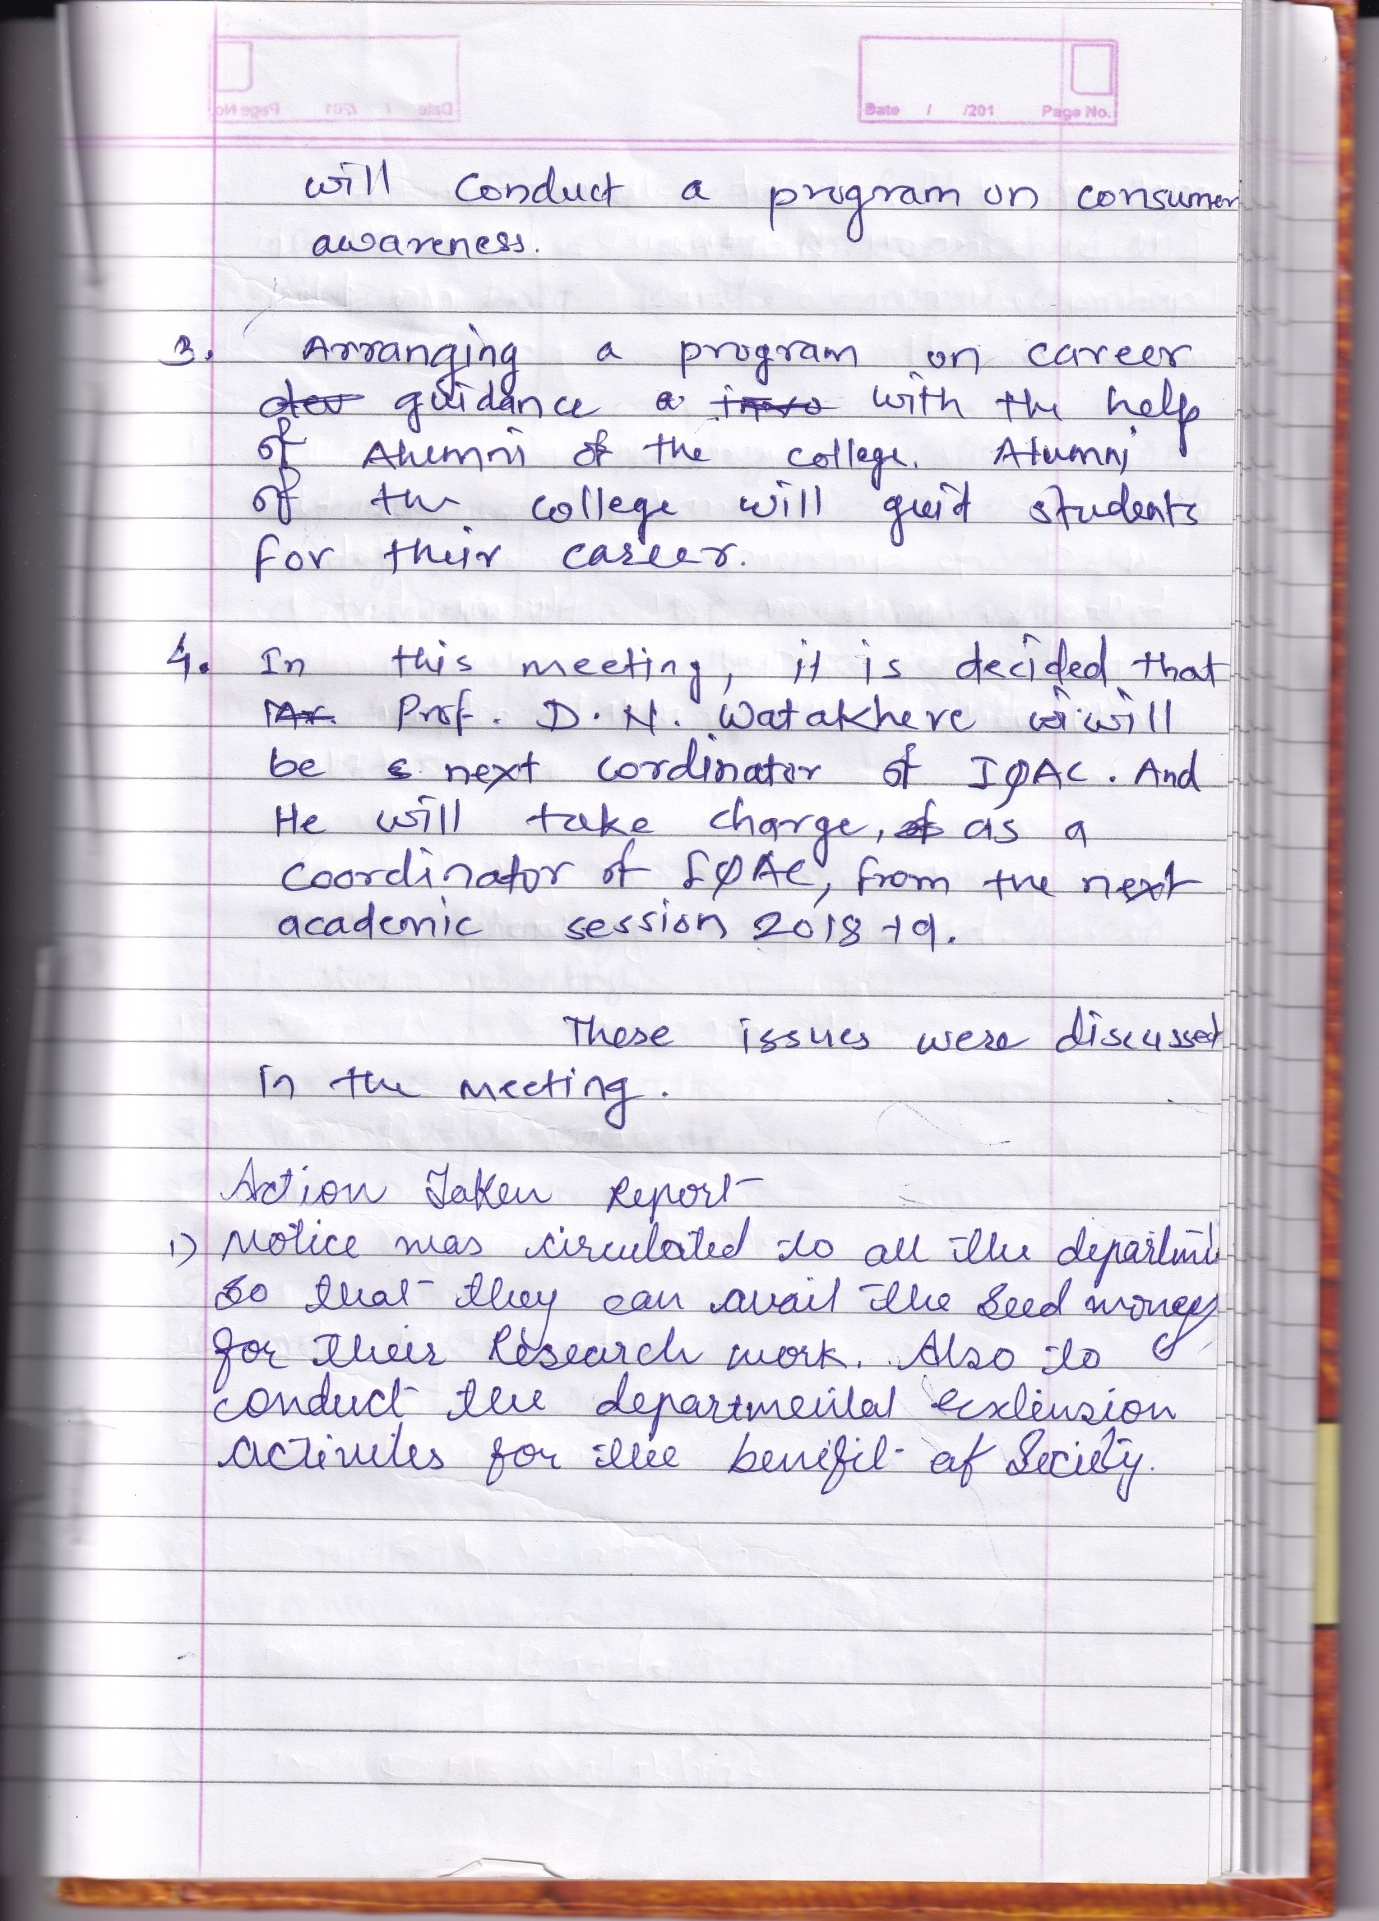 Date / /201 Page No.
will conduct a program on consumer
awareness.
3. Arranging a program on career
guidance a with the help
of Alumni of the college. Alumni
of the college will guid students
for their career.
4. In this meeting, it is decided that
Mr. Prof. D. N. Watakhere will
be next cordinator of IQAC. And
He will take charge, of as a
coordinator of IQAC, from the next
academic session 2018-19.
These issues were discussed
in the meeting.
Action Taken Report
1) Notice was circulated to all the departme
so that they can avail the Seed money
for their Research work. Also to
conduct the departmental extension
activites for the benefit of Society.